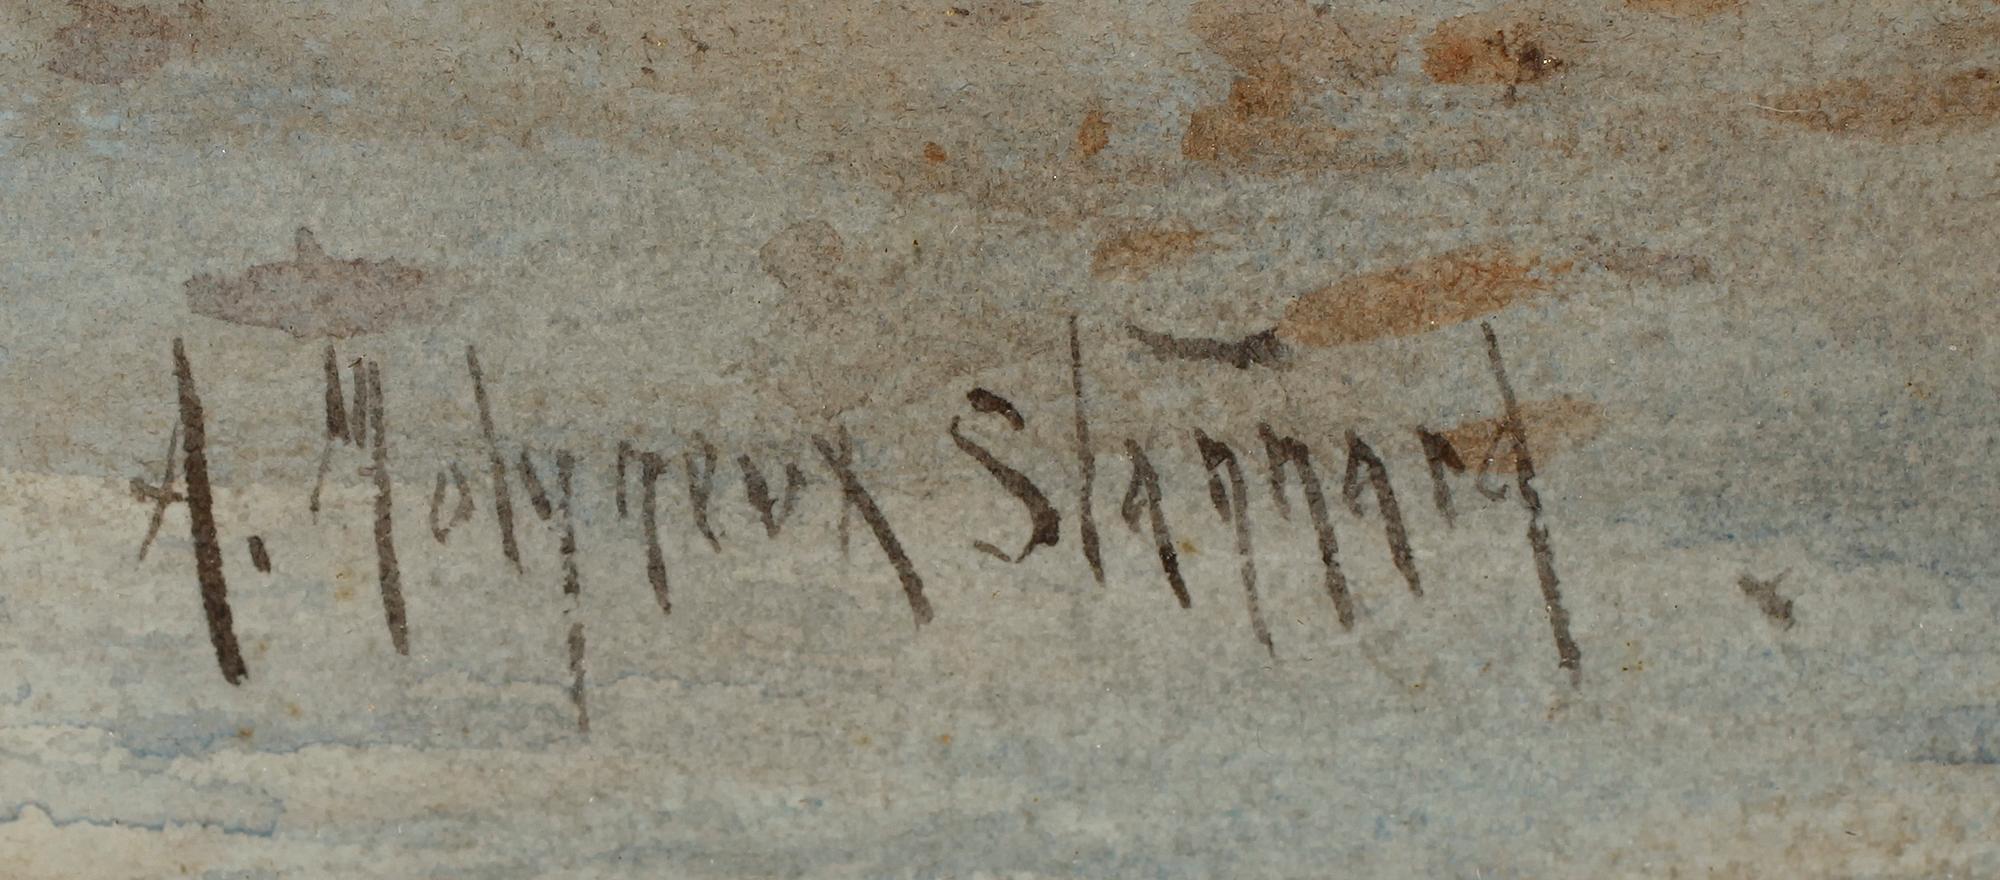 A. Molyneux Stannard.